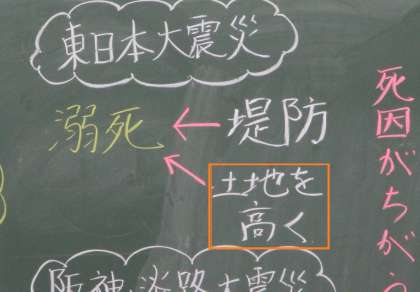 東日本大震災
溺死 ← 堤防
土地を
高く
阪神・淡路大震災
死因がちがう